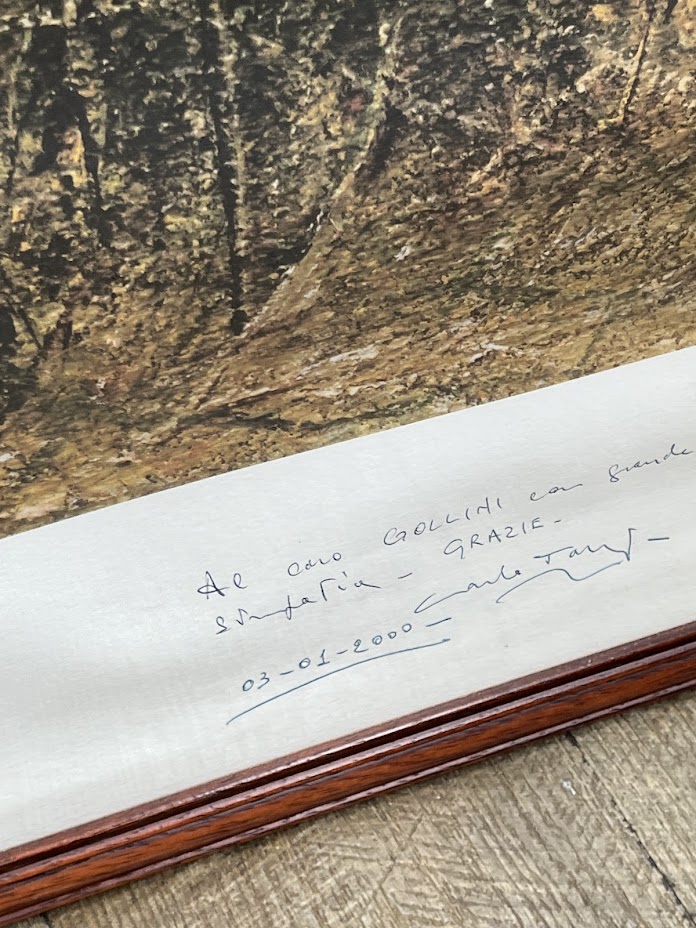 Al caro GOLLINI con grande
simpatia - GRAZIE -
Carlo
03-01-2000-